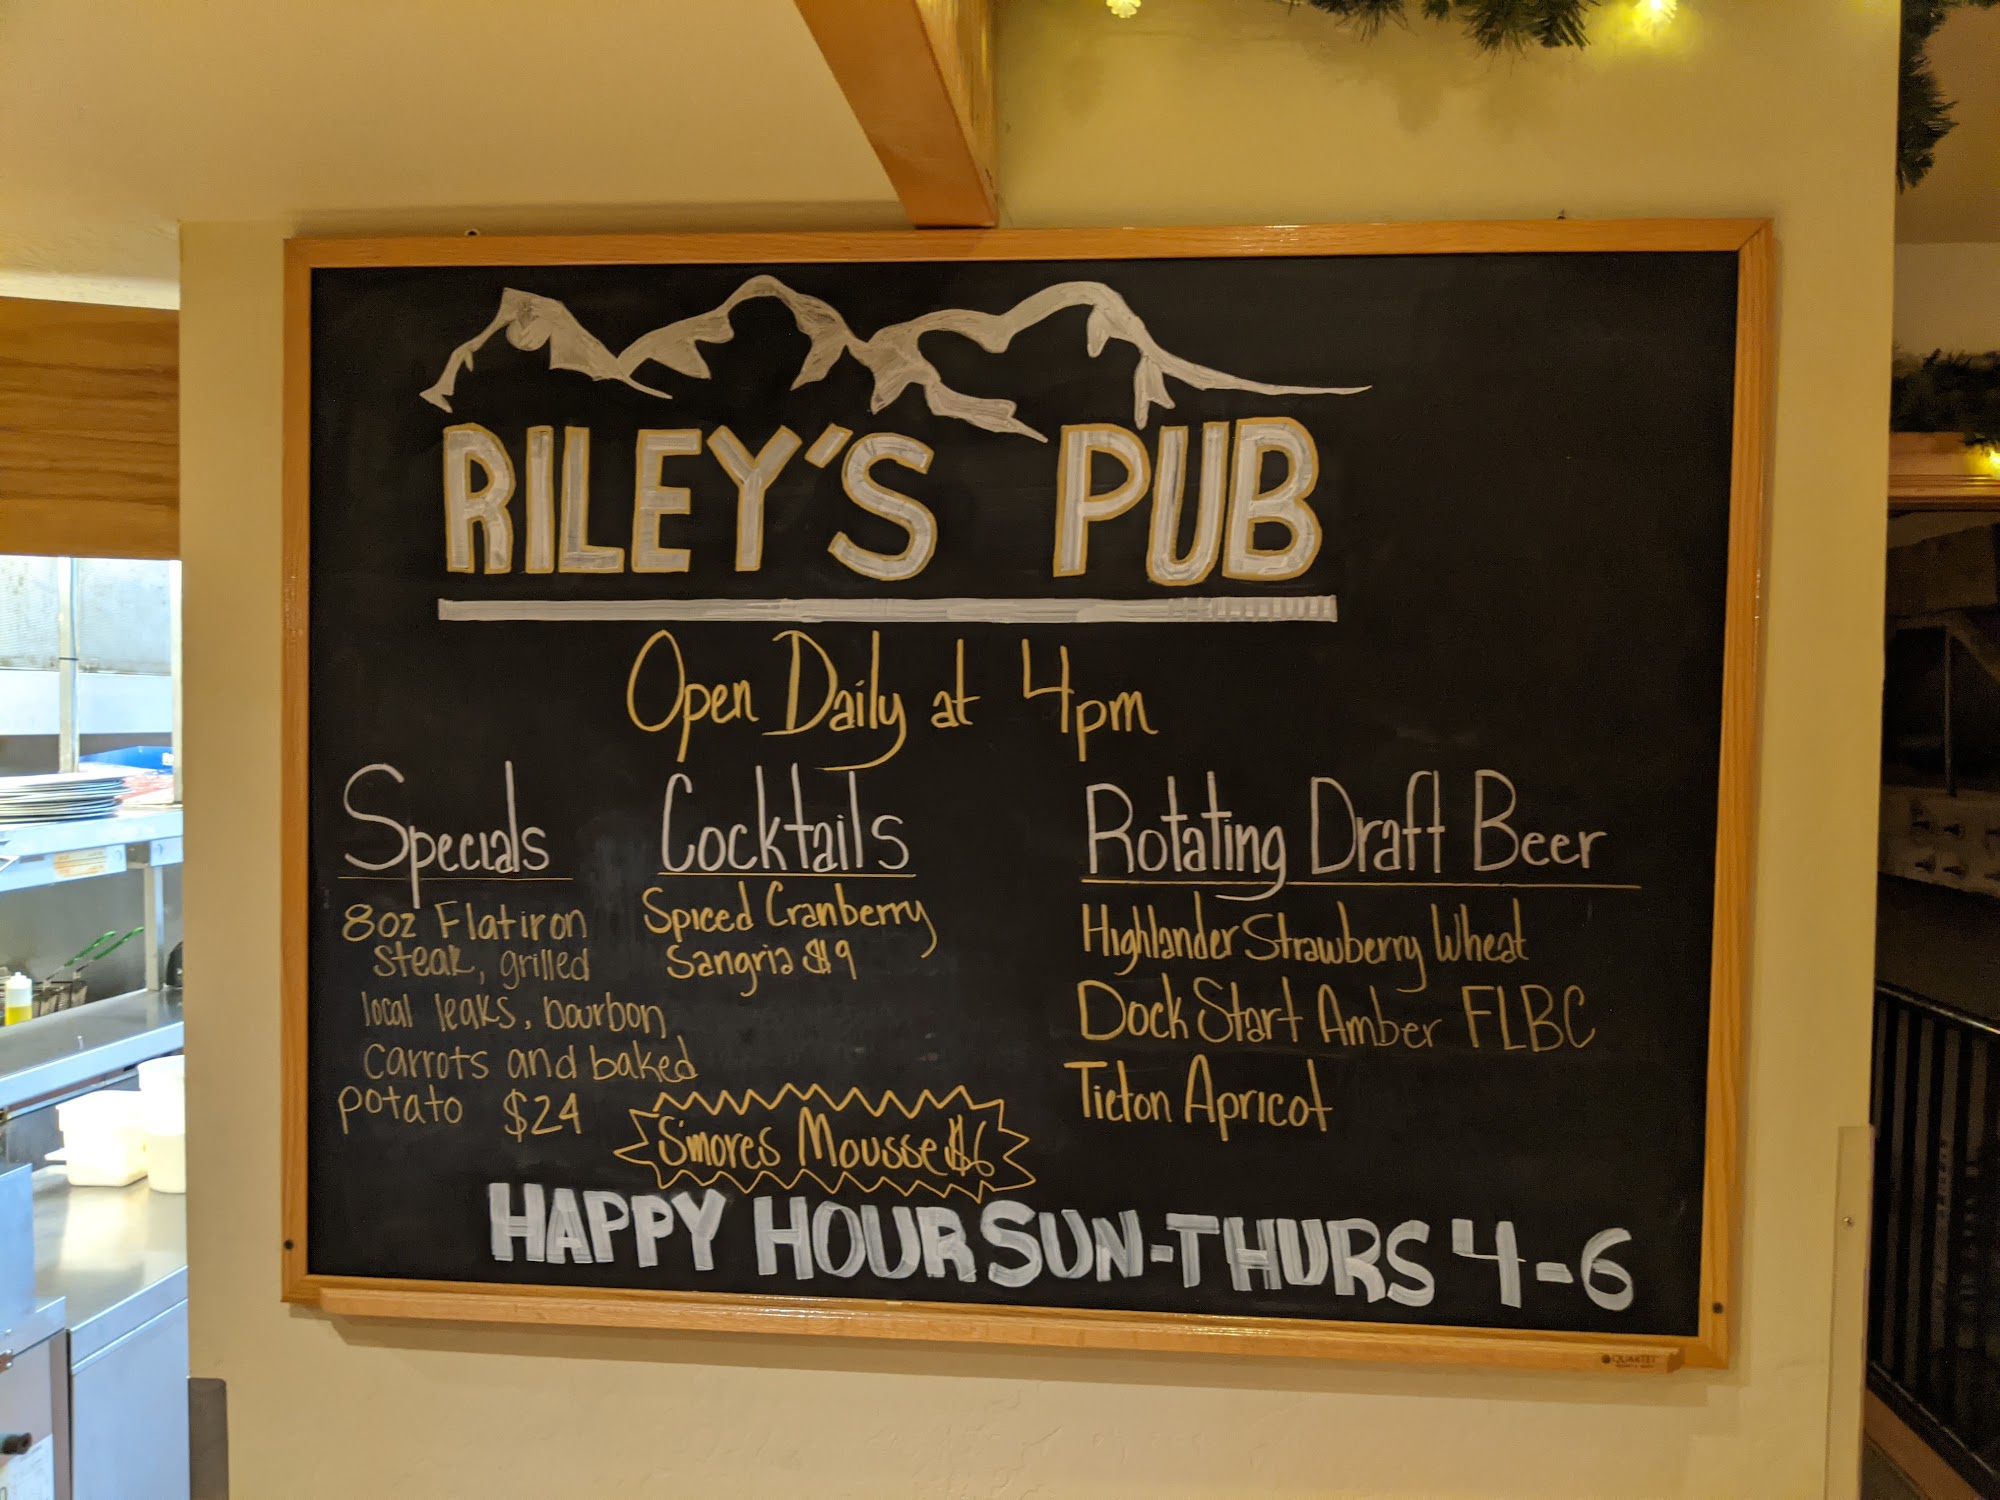 RILEY'S PUB
Open Daily at 4pm
Specials
8oz Flatiron
steak, grilled
local leaks, bourbon
carrots and baked
potato $24
Cocktails
Spiced Cranberry
Sangria $9
S'mores Mousse $6
Rotating Draft Beer
Highlander Strawberry Wheat
Dock Start Amber FLBC
Tieton Apricot
HAPPY HOUR SUN-THURS 4-6
QUARTET